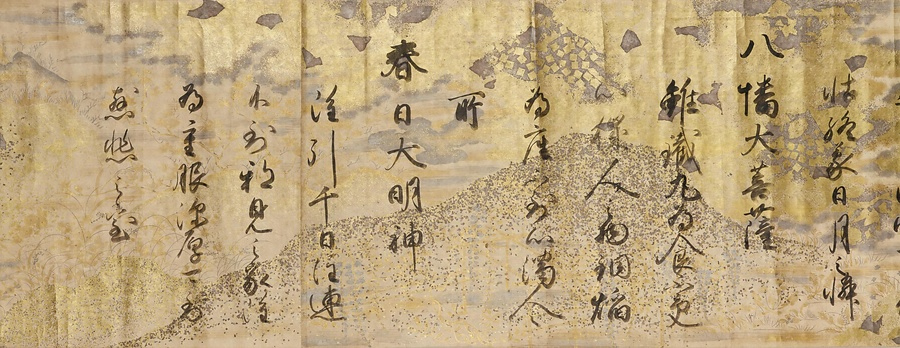 怙終蒙日月之憐
八幡大菩薩
雖鐵丸為食更
穢人之物銅焔
為座不到心濁人之
所
春日大明神
雖引千日注連
不到邪見之家雖
為重服深厚可
慈悲之室